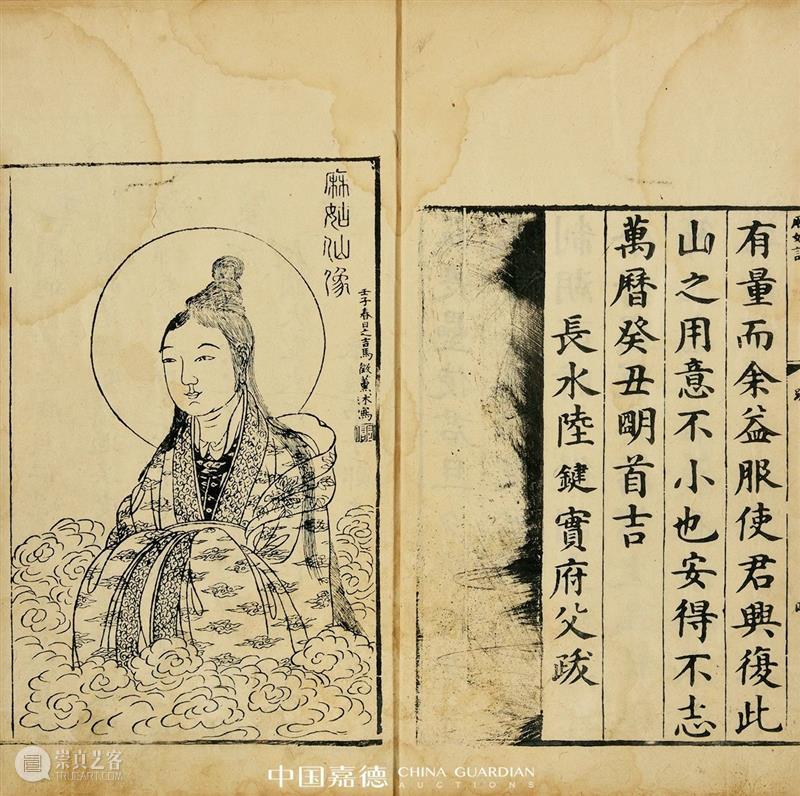 有量而余益服使君興復此
山之用意不小也安得不志
萬曆癸丑朙首吉
長水陸鍵實府父跋
麻姑仙像
壬子春日之吉馬薰沐寫
崇真艺客
TRUEART.COM
中国嘉德 CHINA GUARDIAN
AUCTIONS